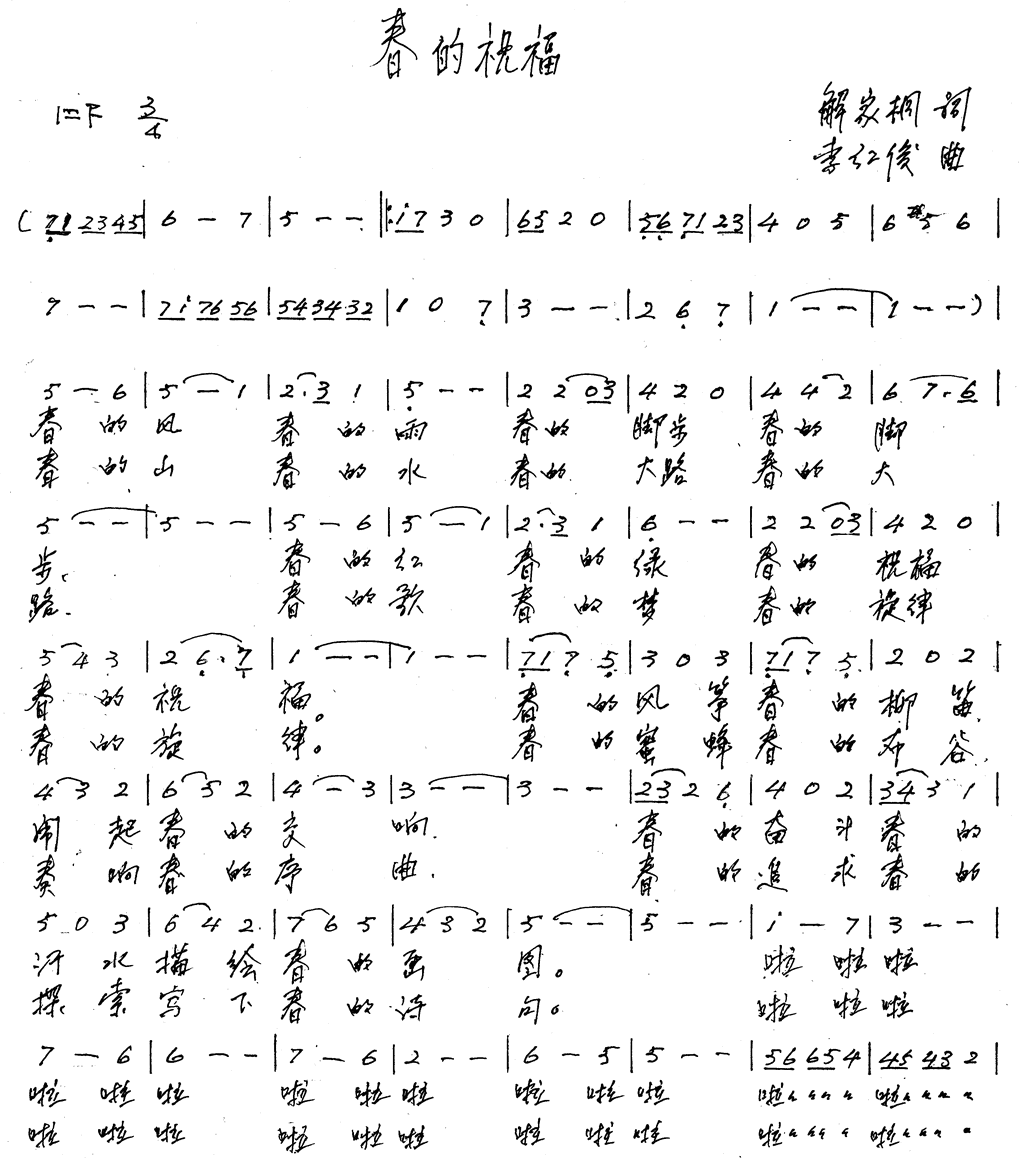 春的祝福
1=F 3/4
解家桐 词
李红俊 曲
( 71 23 45 | 6 — 7 | 5 — — |: i 7 3 0 | 65 2 0 | 56 71 23 | 4 0 5 | 6 5 6 |
7 — — | 7i 76 56 | 54 34 32 | 1 0 7 | 3 — — | 2 6 7 | 1 — — | 1 — — ) |
5 — 6 | 5 — 1 | 2·3 1 | 5 — — | 2 2 03 | 4 2 0 | 4 4 2 | 6 7·6 |
春 的 风 春 的 雨 春 的 脚步 春 的 脚
春 的 山 春 的 水 春 的 大路 春 的 大
5 — — | 5 — — | 5 — 6 | 5 — 1 | 2·3 1 | 6 — — | 2 2 03 | 4 2 0 |
步、 春 的 红 春 的 绿 春 的 祝福
路. 春 的 歌 春 的 梦 春 的 旋律
5 4 3 | 2 6·7 | 1 — — | 1 — — | 71 7 5 | 3 0 3 | 71 7 5 | 2 0 2 |
春 的 祝 福。 春 的 风 筝 春 的 柳 笛、
春 的 旋 律。 春 的 蜜 蜂 春 的 布 谷、
4 3 2 | 6 5 2 | 4 — 3 | 3 — — | 3 — — | 23 2 6 | 4 0 2 | 34 3 1 |
闹 起 春 的 交 响. 春 的 奋 斗 春 的
奏 响 春 的 序 曲. 春 的 追 求 春 的
5 0 3 | 6 4 2 | 7 6 5 | 4 3 2 | 5 — — | 5 — — | i — 7 | 3 — — |
汗 水 描 绘 春 的 画 图。 啦 啦 啦
探、 索 写 下 春 的 诗 句。 啦 啦 啦
7 — 6 | 6 — — | 7 — 6 | 2 — — | 6 — 5 | 5 — — | 56 65 4 | 45 43 2 |
啦 啦 啦 啦 啦 啦 啦 啦 啦 啦〃〃〃〃 啦〃〃〃〃
啦 啦 啦 啦 啦 啦 啦 啦 啦 啦〃〃〃〃 啦〃〃〃〃